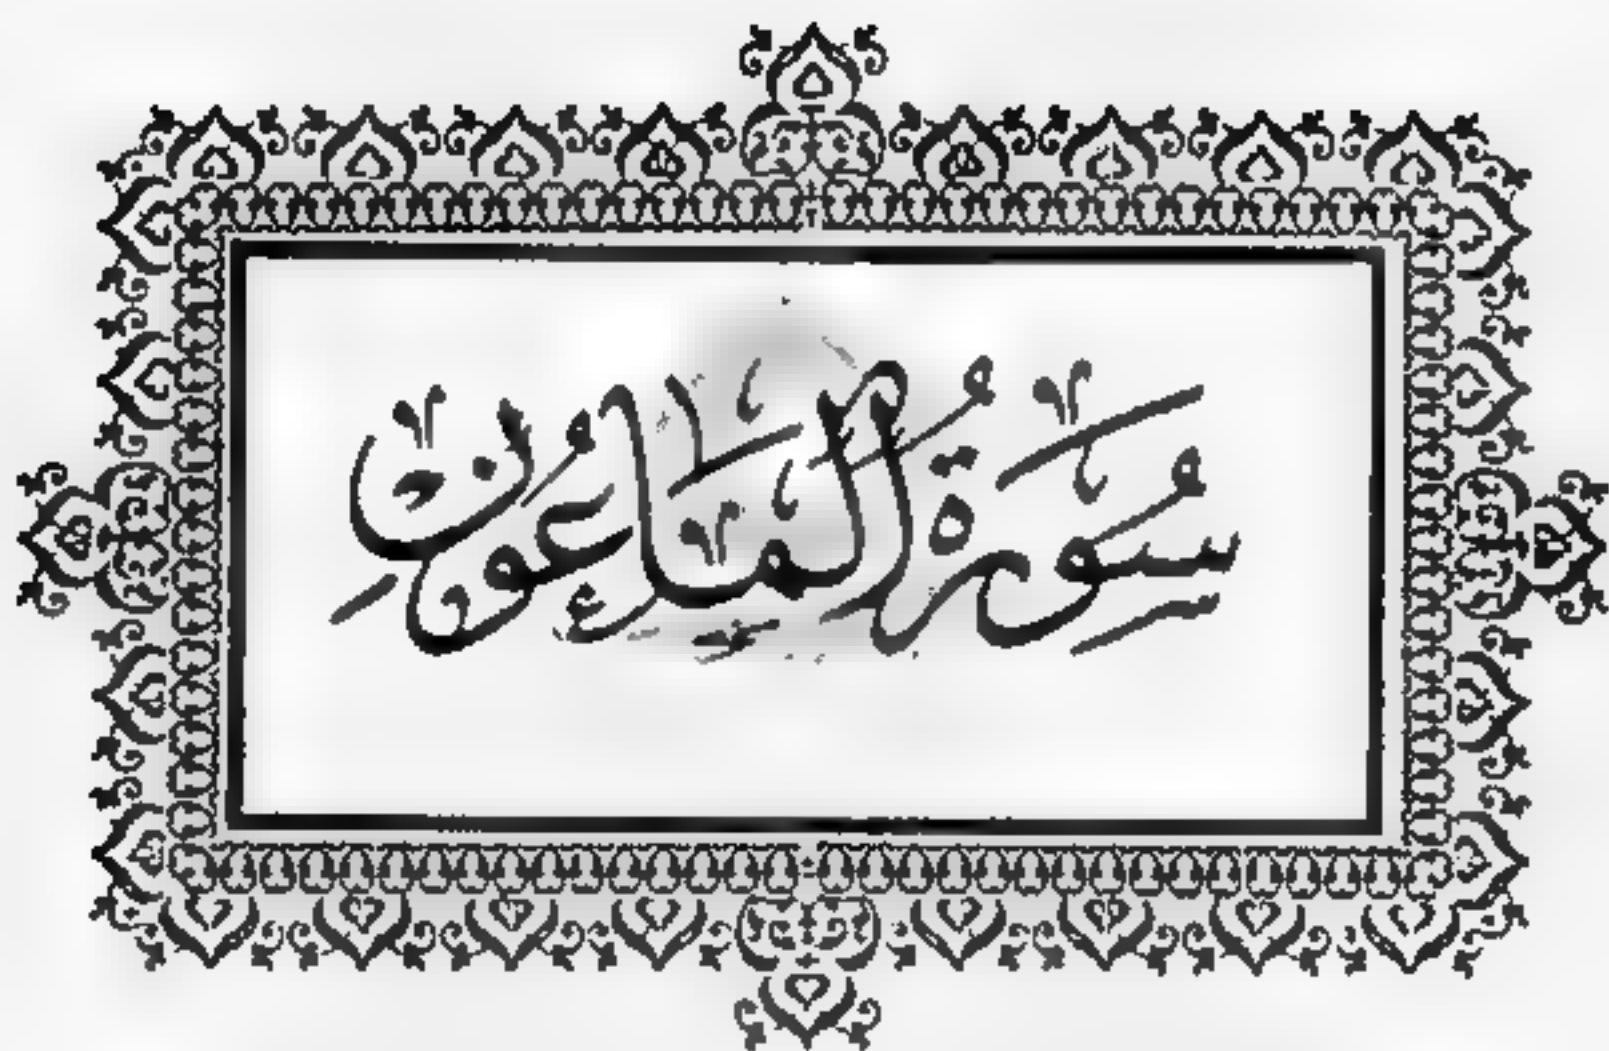 سُورَةُ الْمَاعُونِ